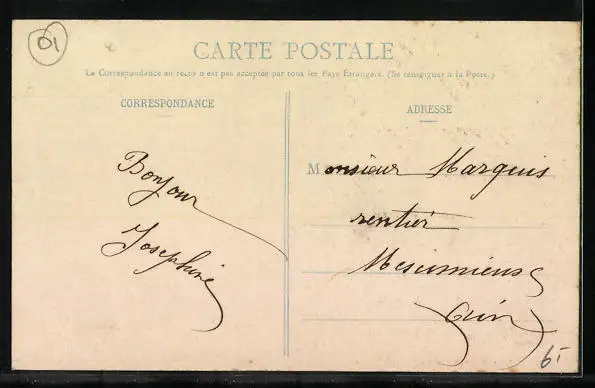 01
CARTE POSTALE
La Correspondance au recto n'est pas acceptée par tous les Pays Etrangers. (Se renseigner à la Poste.)
CORRESPONDANCE
ADRESSE
Bonjour
Josephine
Monsieur Marquis
rentier
Meximieux
Ain
6-